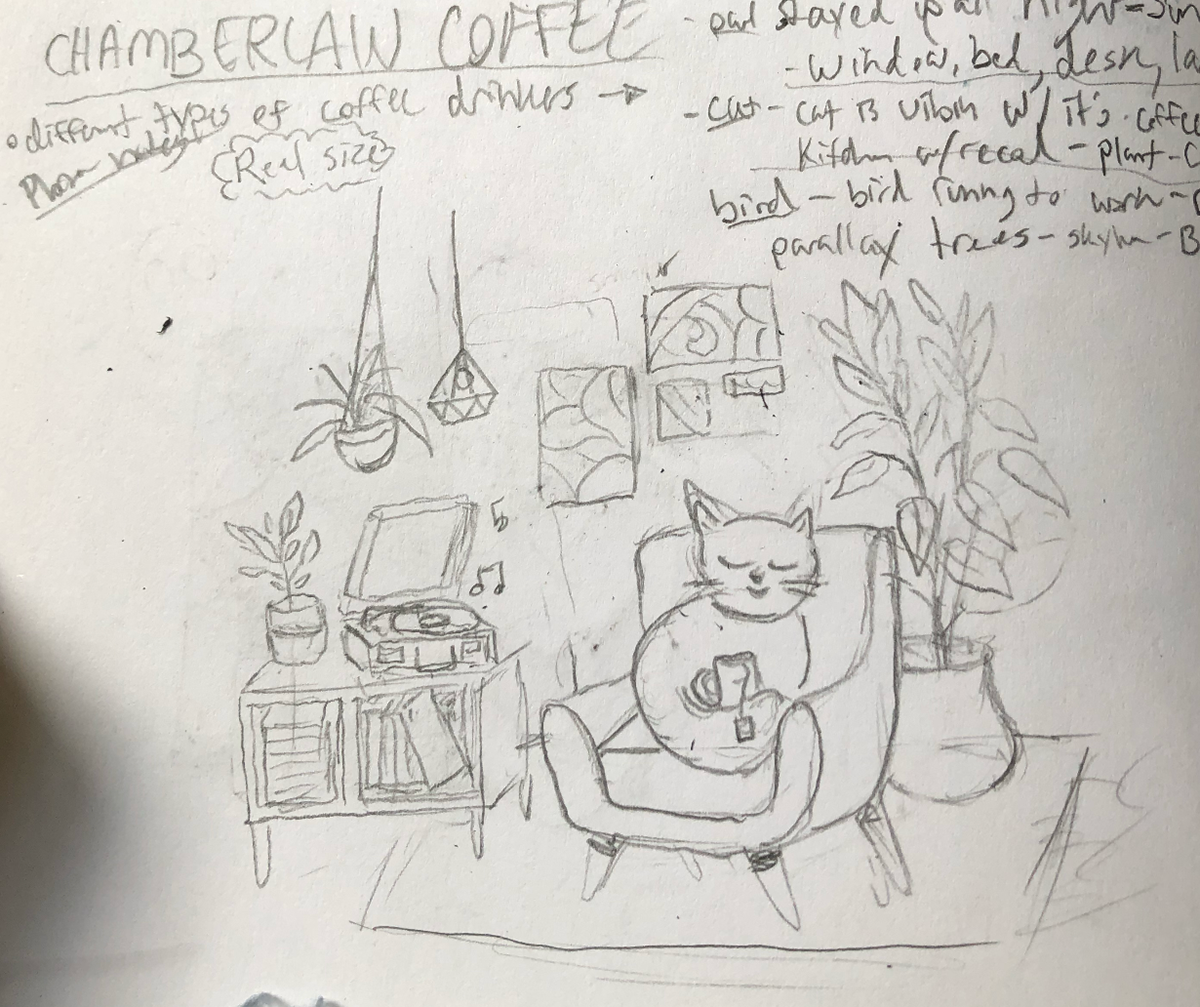 CHAMBERLAIN COFFEE
• different types of coffee drinkers →
Real size
- owl stayed up all night =
- window, bed, desk, la
- cat - cat is vibin w/ it's coffee
Kitchen w/ - plant - C
bird - bird to work -
parallax trees - - B